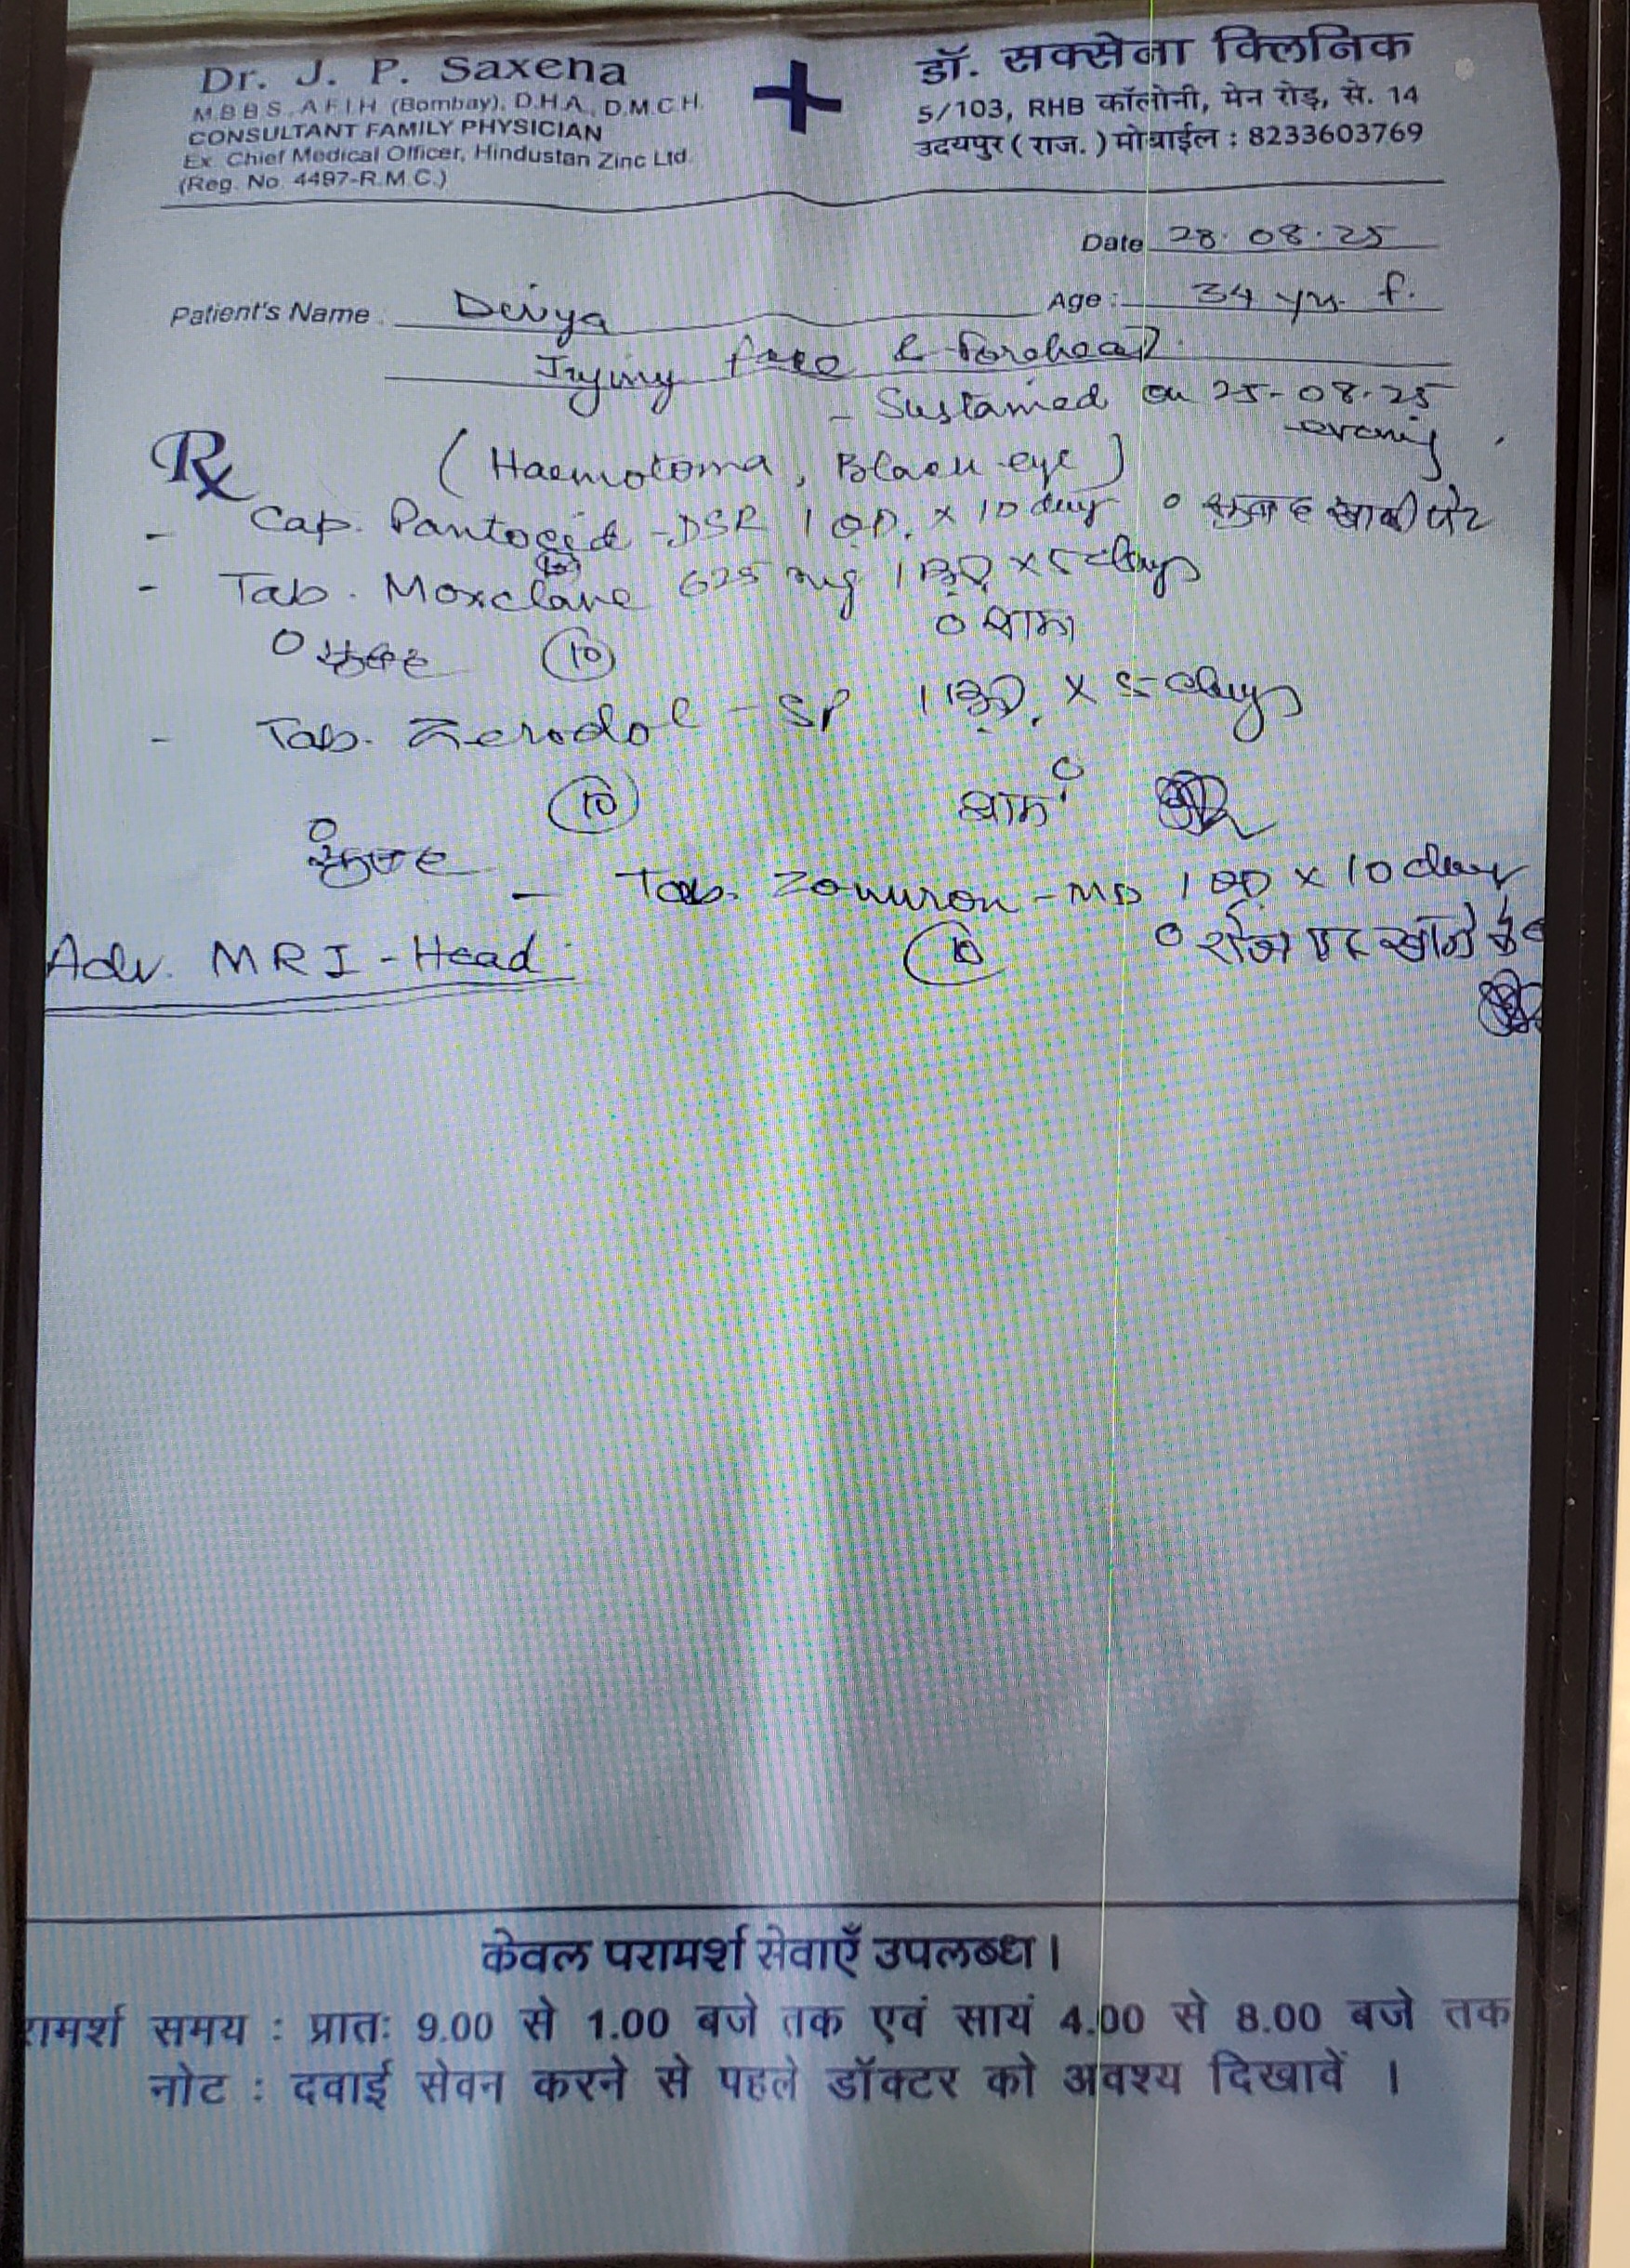 Dr. J. P. Saxena
M.B.B.S., A.F.I.H. (Bombay), D.H.A., D.M.C.H.
CONSULTANT FAMILY PHYSICIAN
Ex. Chief Medical Officer, Hindustan Zinc Ltd.
(Reg. No. 4497-R.M.C.)
डॉ. सक्सेना क्लिनिक
5/103, RHB कॉलोनी, मेन रोड़, से. 14
उदयपुर ( राज. ) मोबाईल : 8233603769
Date 28.08.25
Patient's Name Divya Age : 34 yrs. f.
Injury face & forehead
- Sustained on 25-08.25
evening
Rx (Haemotoma, Black eye)
- Cap. Pantocid -DSR 1 OD. x 10 day सुबह खाली पेट
10
- Tab. Moxclave 625 mg 1 BD x 5 days
सुबह 10 शाम
- Tab. Zerodol - SP 1 BD. x 5 days
10 शाम
सुबह
- Tab. - MD 1 OD x 10 day
Adv. MRI - Head 10 रोज
केवल परामर्श सेवाएँ उपलब्ध।
रामर्श समय : प्रातः 9.00 से 1.00 बजे तक एवं सायं 4.00 से 8.00 बजे तक
नोट : दवाई सेवन करने से पहले डॉक्टर को अवश्य दिखावें ।